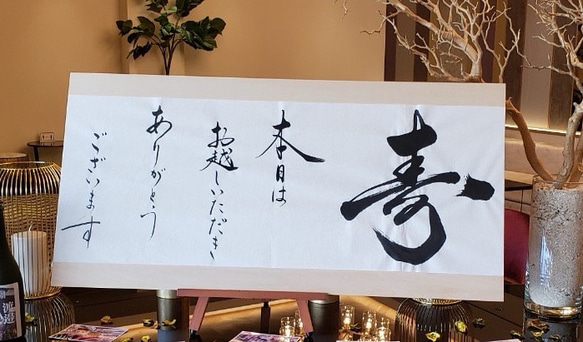 寿
本日は
お越しいただき
ありがとう
ございます